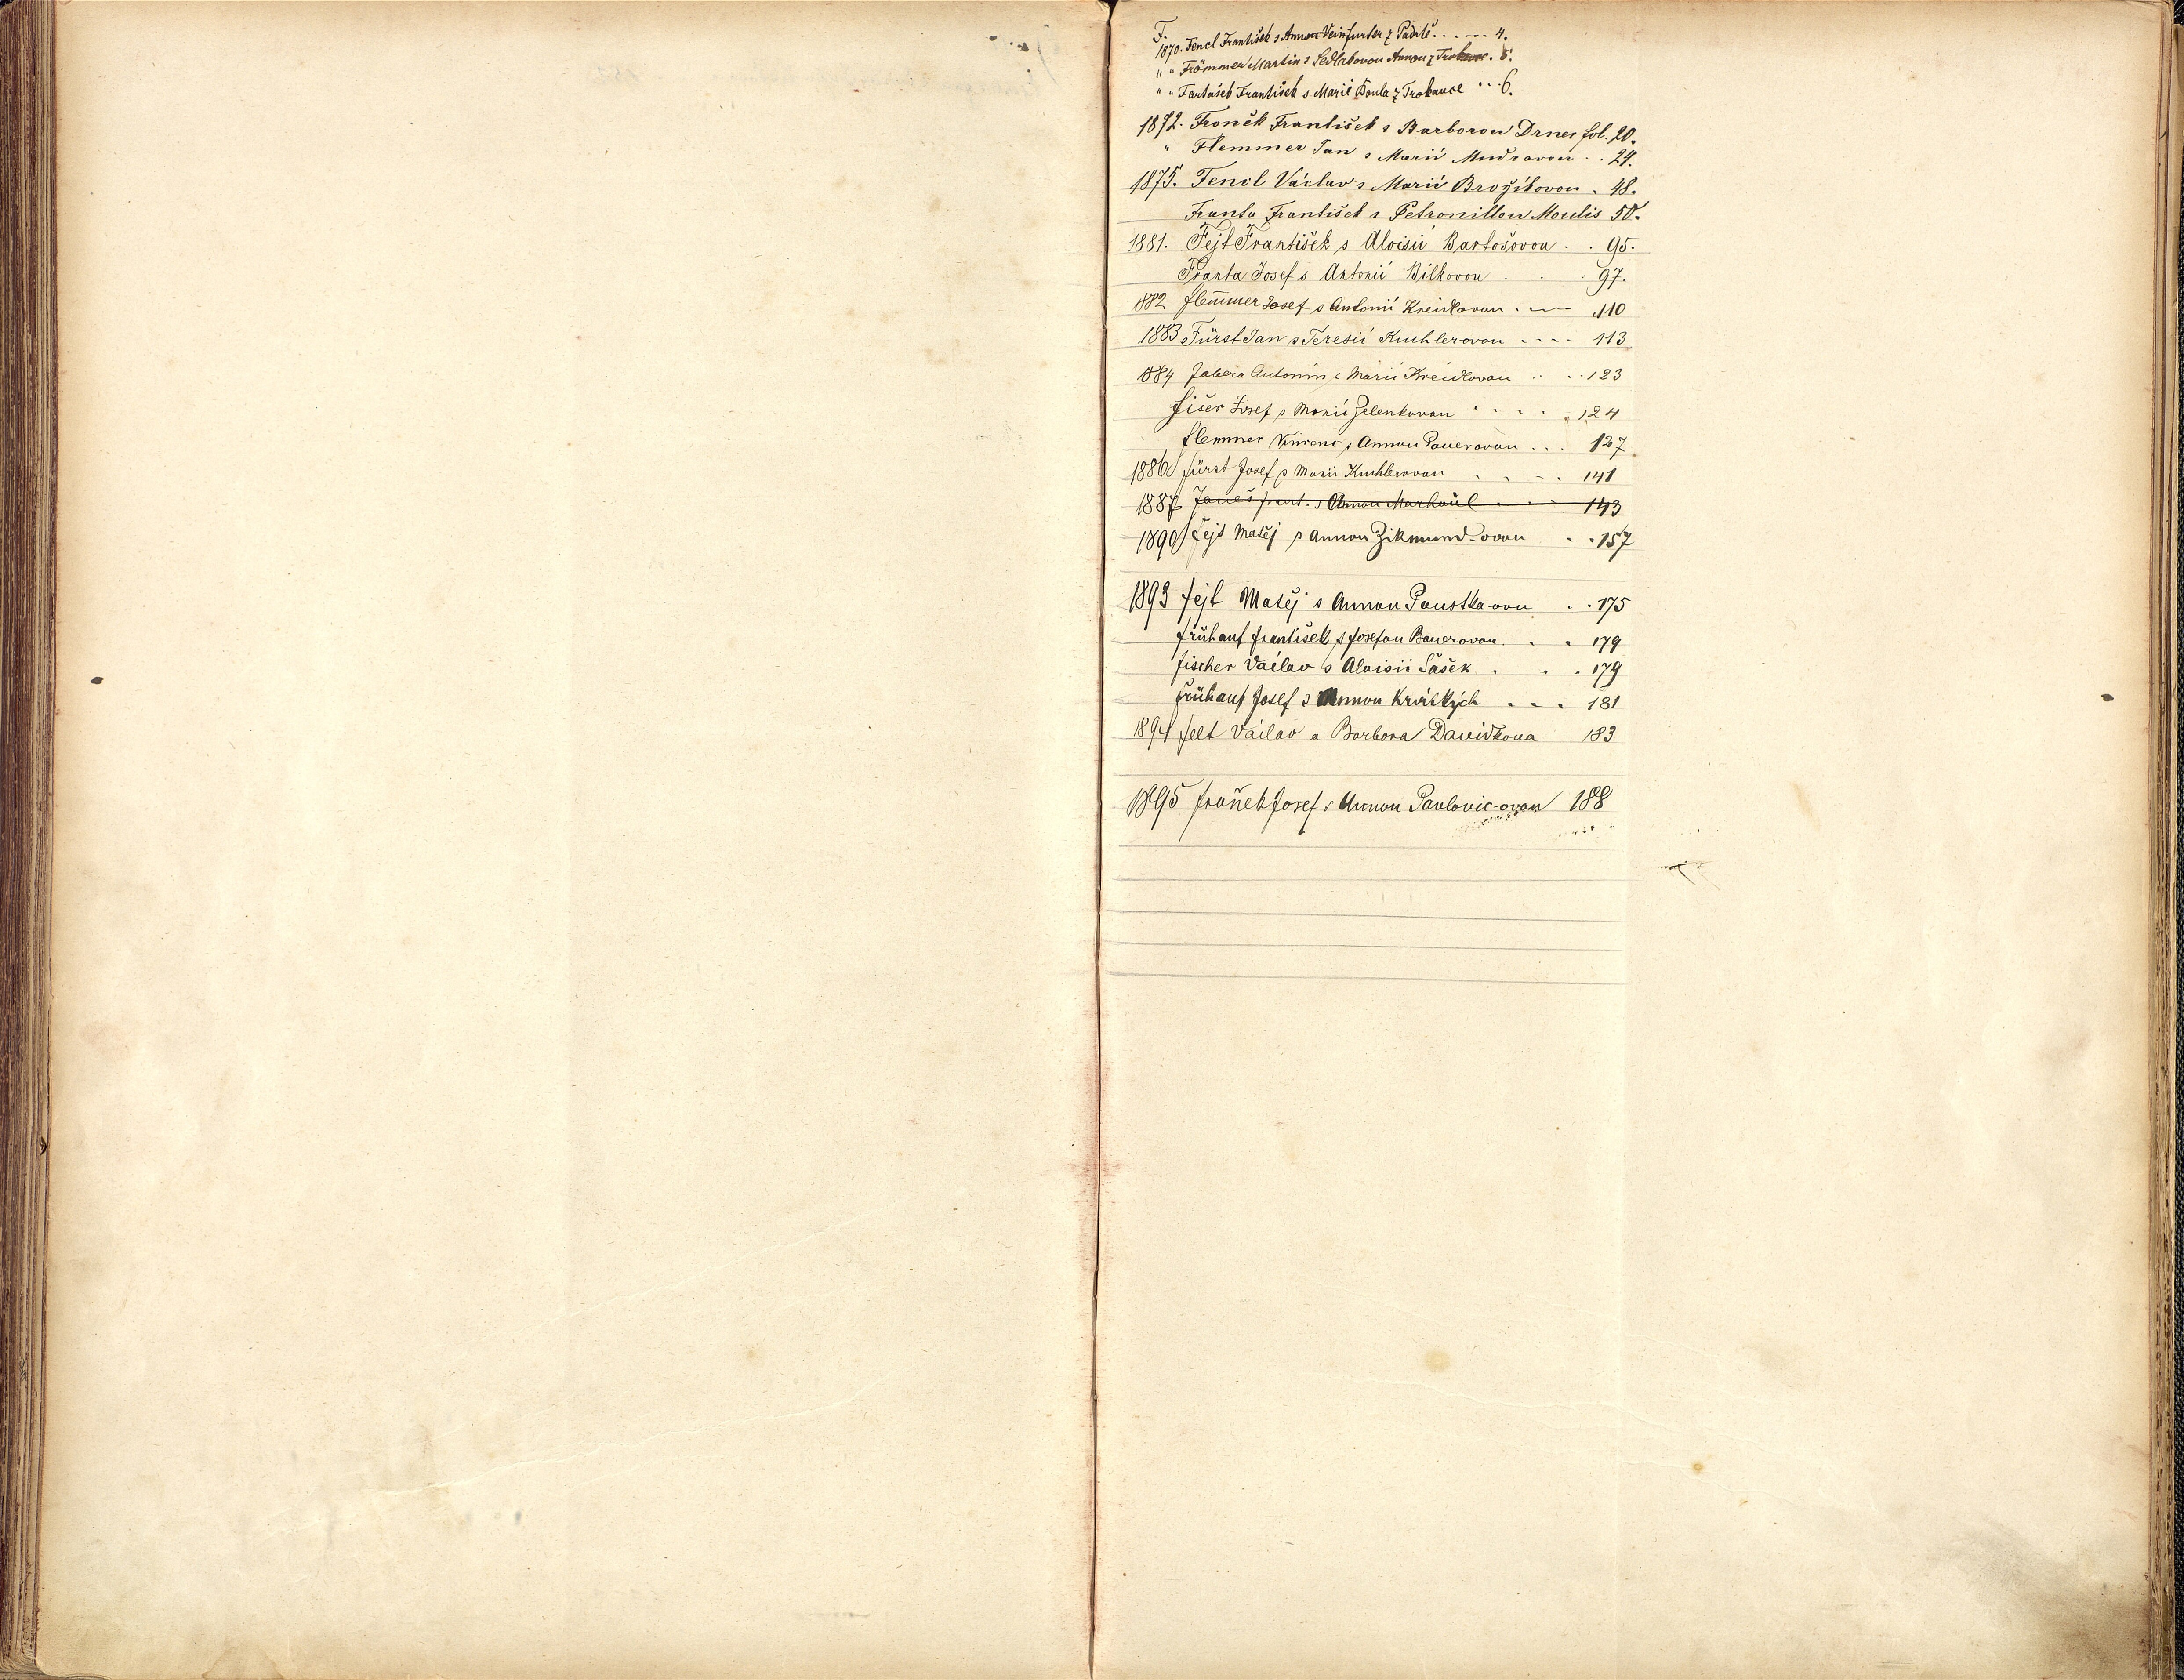 F.
1870. Fencl František s Annou Veinfurter z Padrtě. . . . . 4.
" " Frömmer Martin s Sedlakovou Annou z . 5.
" " František s Marií z Trokavce . . . 6.
1872. Froněk František s Barborou Drner fol. 20.
" Flemmer Jan s Marií Mudrovou . . 24.
1875. Fencl Václav s Marií Brožíkovou . 48.
Franta František s Petronillou Moulis 50.
1881. Fejt František s Aloisií Bartošovou . . 95.
Franta Josef s Antonií Bílkovou . . . 97.
1882 Flem̅er Josef s Antonií Kreidlovou . — 110
1883 Fürst Jan s Teresií Kuchlerovou . . . . 113
1884 Antonín s Marií Kreidlovou . . . . 123
Fišer Josef s Marií Zelenkovou . . . . . 124
Flemmer Vincenc s Annou Pauerovou . . . 127
1886 Fürst Josef s Marií Kuchlerovou . . . . 141
1887 Frant. s Annou . . . 143
1890 Fejt Matěj s Annou Zikmund-ovou . . 157
1893 Fejt Matěj s Annou Poustka-ovu . . 175
Frühauf František s Josefou Bauerovou . . . 179
Fischer Václav s Aloisií Šašek . . . 179
Frühauf Josef s Annou Krátkých . . . 181
1894 Felt Václav a Barbora Davídkova 183
1895 Froněk Josef s Annou Pavlovic-ovou 188